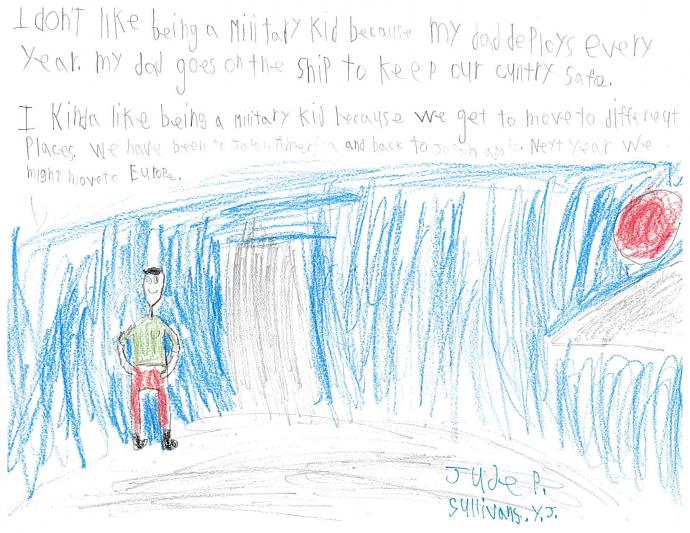 I don't like being a military kid because my dad deploys every
year. my dad goes on the ship to keep our cuntry safe.
I kinda like being a military kid because we get to move to different
places. we have been to Japan America and back to Japan again. Next year we
might move to Europe.
Jude P.
Sullivans. Y.J.